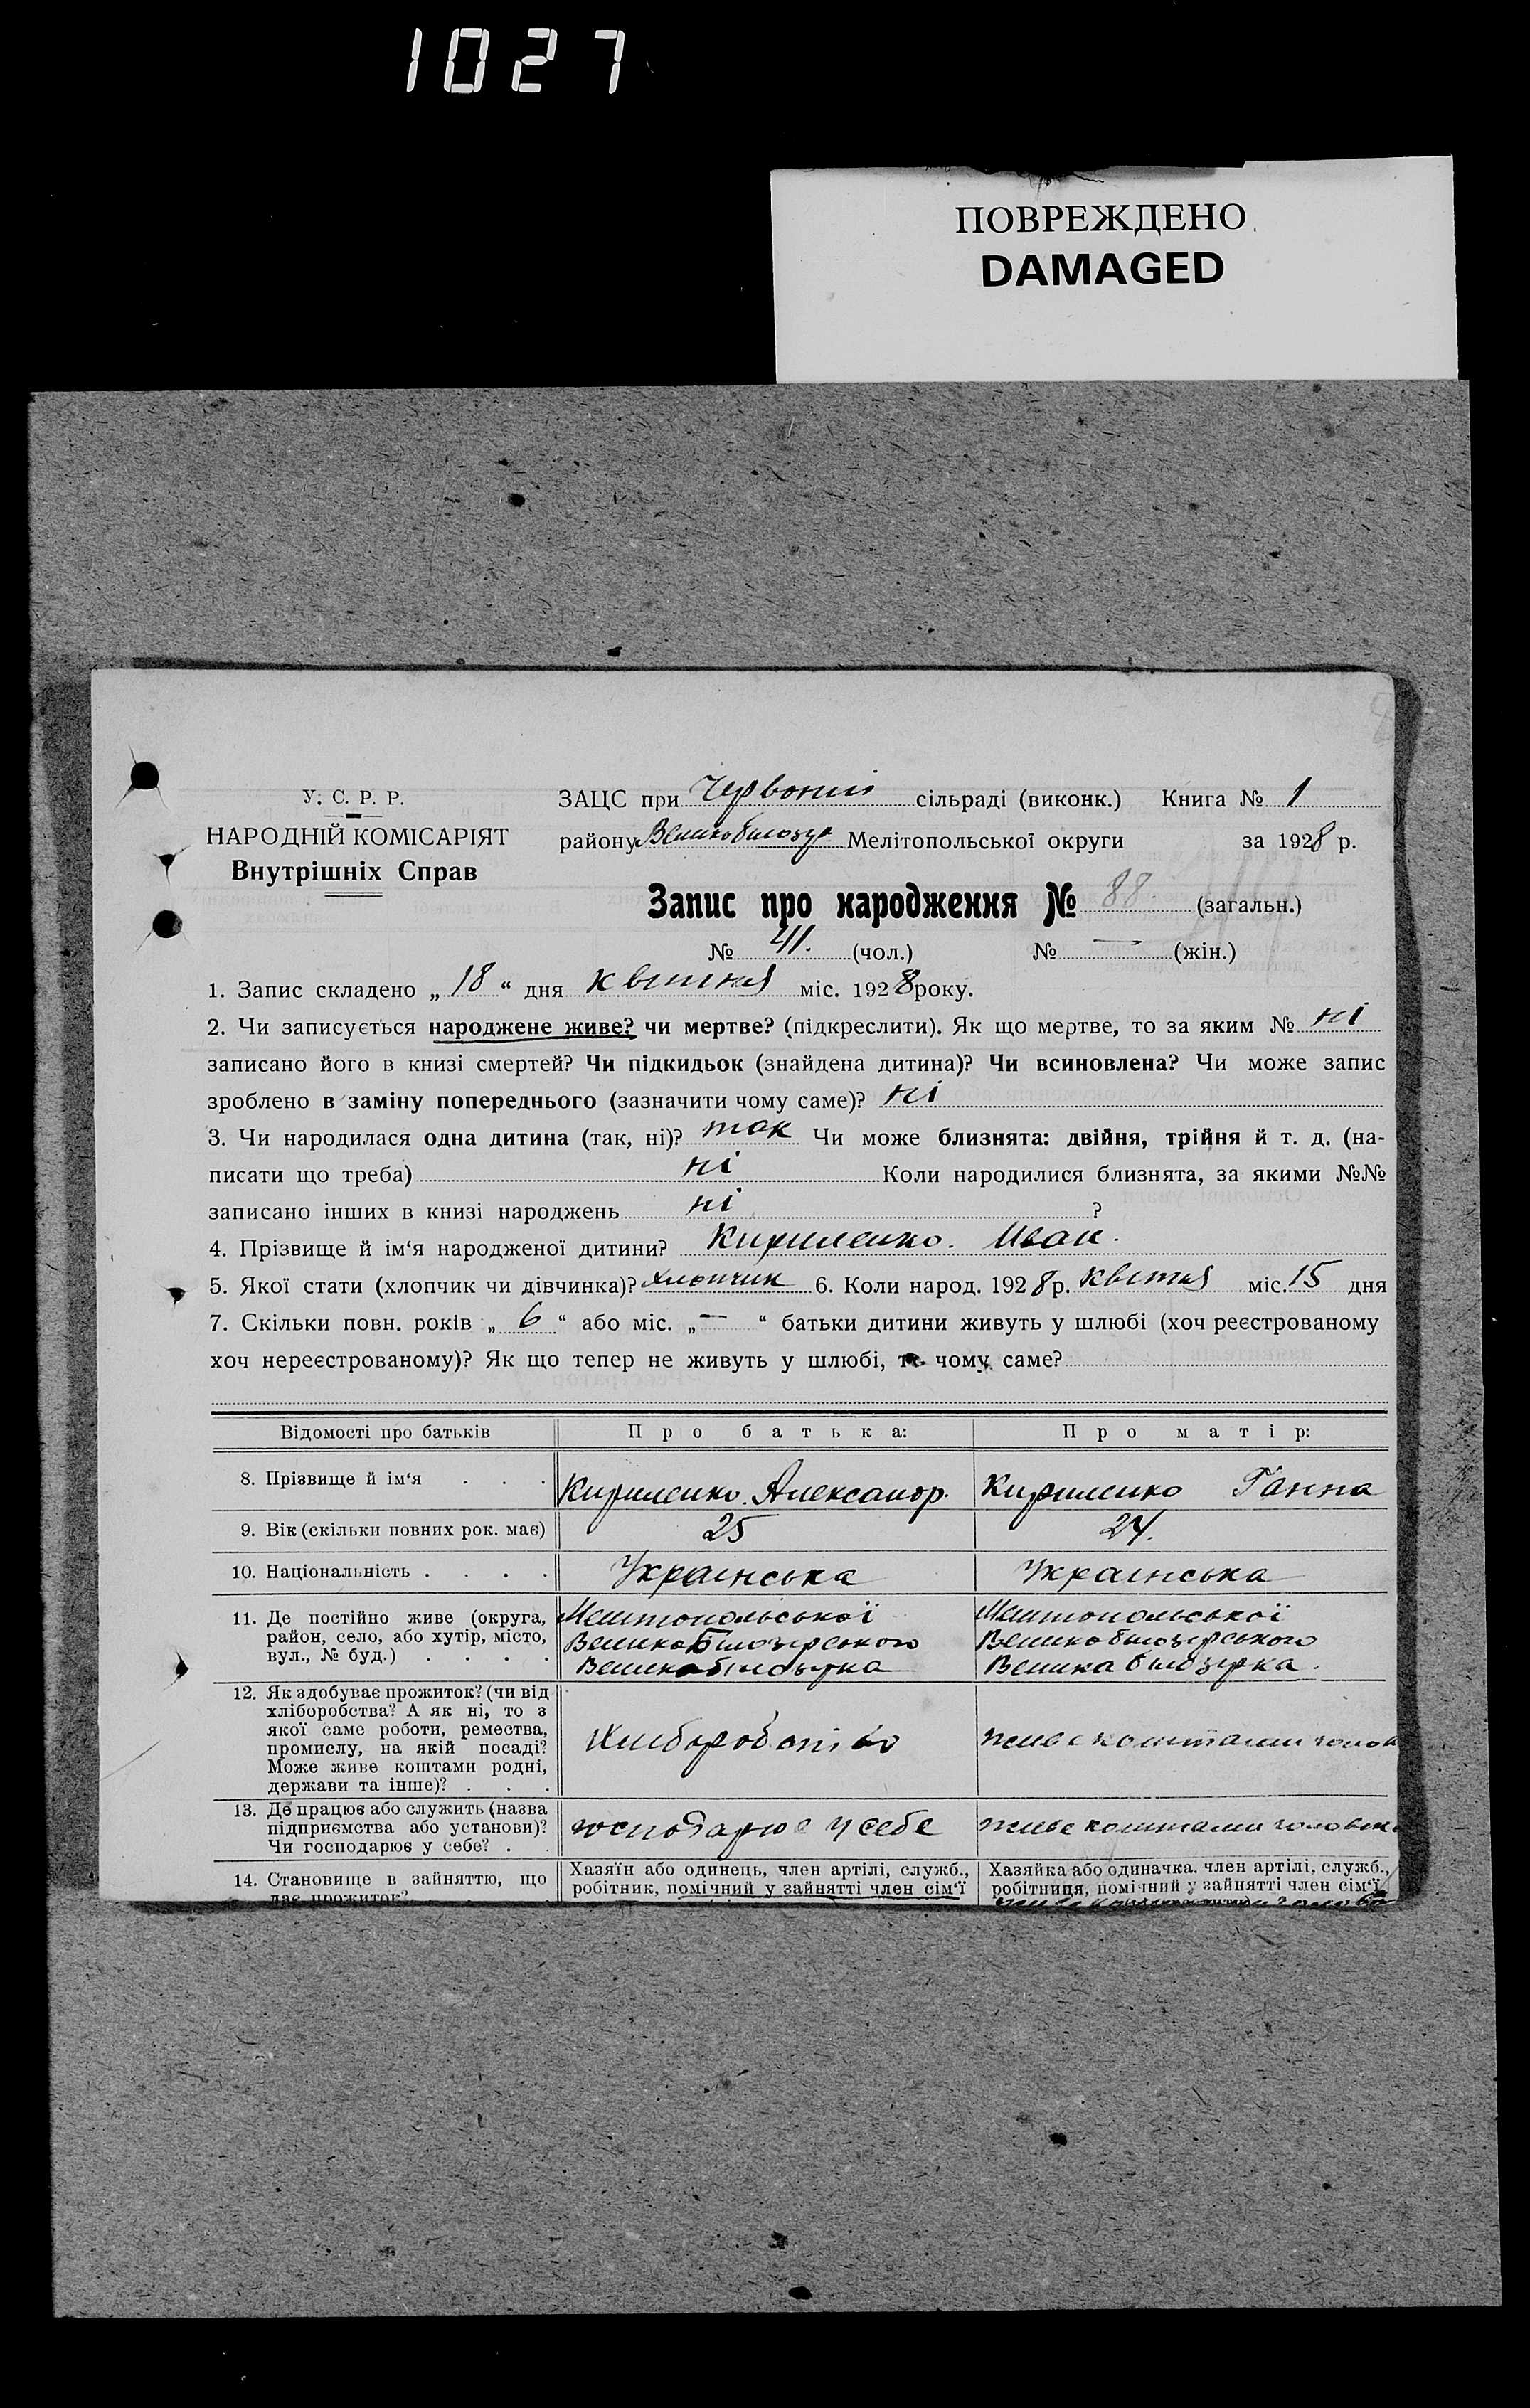 1027
ПОВРЕЖДЕНО
DAMAGED
У. С. Р. Р.
НАРОДНІЙ КОМІСАРІЯТ
Внутрішніх Справ
ЗАЦС при Червоній сільраді (виконк.) Книга № 1
району Великобілозер Мелітопольської округи за 1928 р.
Запис про народження № 88. (загальн.)
№ 41. (чол.) № — (жін.)
1. Запис складено „18“ дня квітня міс. 1928 року.
2. Чи записується народжене живе? чи мертве? (підкреслити). Як що мертве, то за яким № ні
записано його в книзі смертей? Чи підкидьок (знайдена дитина)? Чи всиновлена? Чи може запис
зроблено в заміну попереднього (зазначити чому саме)? ні
3. Чи народилася одна дитина (так, ні)? так Чи може близнята: двійня, трійня й т. д. (на-
писати що треба) ні Коли народилися близнята, за якими №№
записано інших в книзі народжень ні ?
4. Прізвище й ім‘я народженої дитини? Кириленко. Иван.
5. Якої стати (хлопчик чи дівчинка)? хлопчик 6. Коли народ. 1928 р. квітня міс. 15 дня
7. Скільки повн. років „ 6 “ або міс. „ — “ батьки дитини живуть у шлюбі (хоч реєстрованому
хоч нереєстрованому)? Як що тепер не живуть у шлюбі, то чому саме?
Відомості про батьків Про батька: Про матір:
8. Прізвище й ім‘я . . . Кириленко. Александр. Кириленко Ганна
9. Вік (скільки повних рок. має) 25 24.
10. Національність . . . . Українська Українська
11. Де постійно живе (округа, Мелітопольської Мелітопольської
район, село, або хутір, місто, ВеликоБілозерського Великобілозерського
вул., № буд.) . . . . Великобілозерка Велика білозерка.
12. Як здобуває прожиток? (чи від
хліборобства? А як ні, то з
якої саме роботи, ремества,
промислу, на якій посаді? Хліборобство живе коштами голов
Може живе коштами родні,
держави та інше)? . . .
13. Де працює або служить (назва
підприємства або установи)? господарює у себе живе коштами головик
Чи господарює у себе? . .
14. Становище в зайняттю, що Хазяїн або одинець, член артілі, служб., Хазяйка або одиначка. член артілі, служб.,
дає прожиток? робітник, помічний у зайнятті член сім‘ї робітниця, помічний у зайнятті член сім‘ї